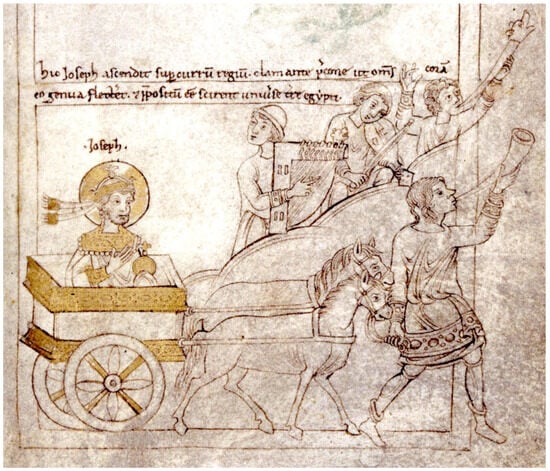 hic Joseph ascendit sup currū regiū . clamante p̄cone ut om̄s corā
eo genua flecter̄et . & p̄positū eē scirent uniuse tr̄e egypti .
. Joseph .